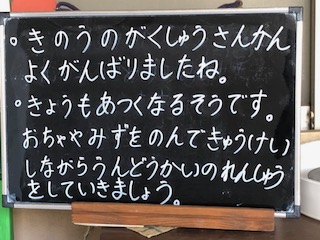 。きのうのがくしゅうさんかん
よくがんばりましたね。
。きょうもあつくなるそうです。
おちゃやみずをのんできゅうけい
しながらうんどうかいのれんしゅう
をしていきましょう。